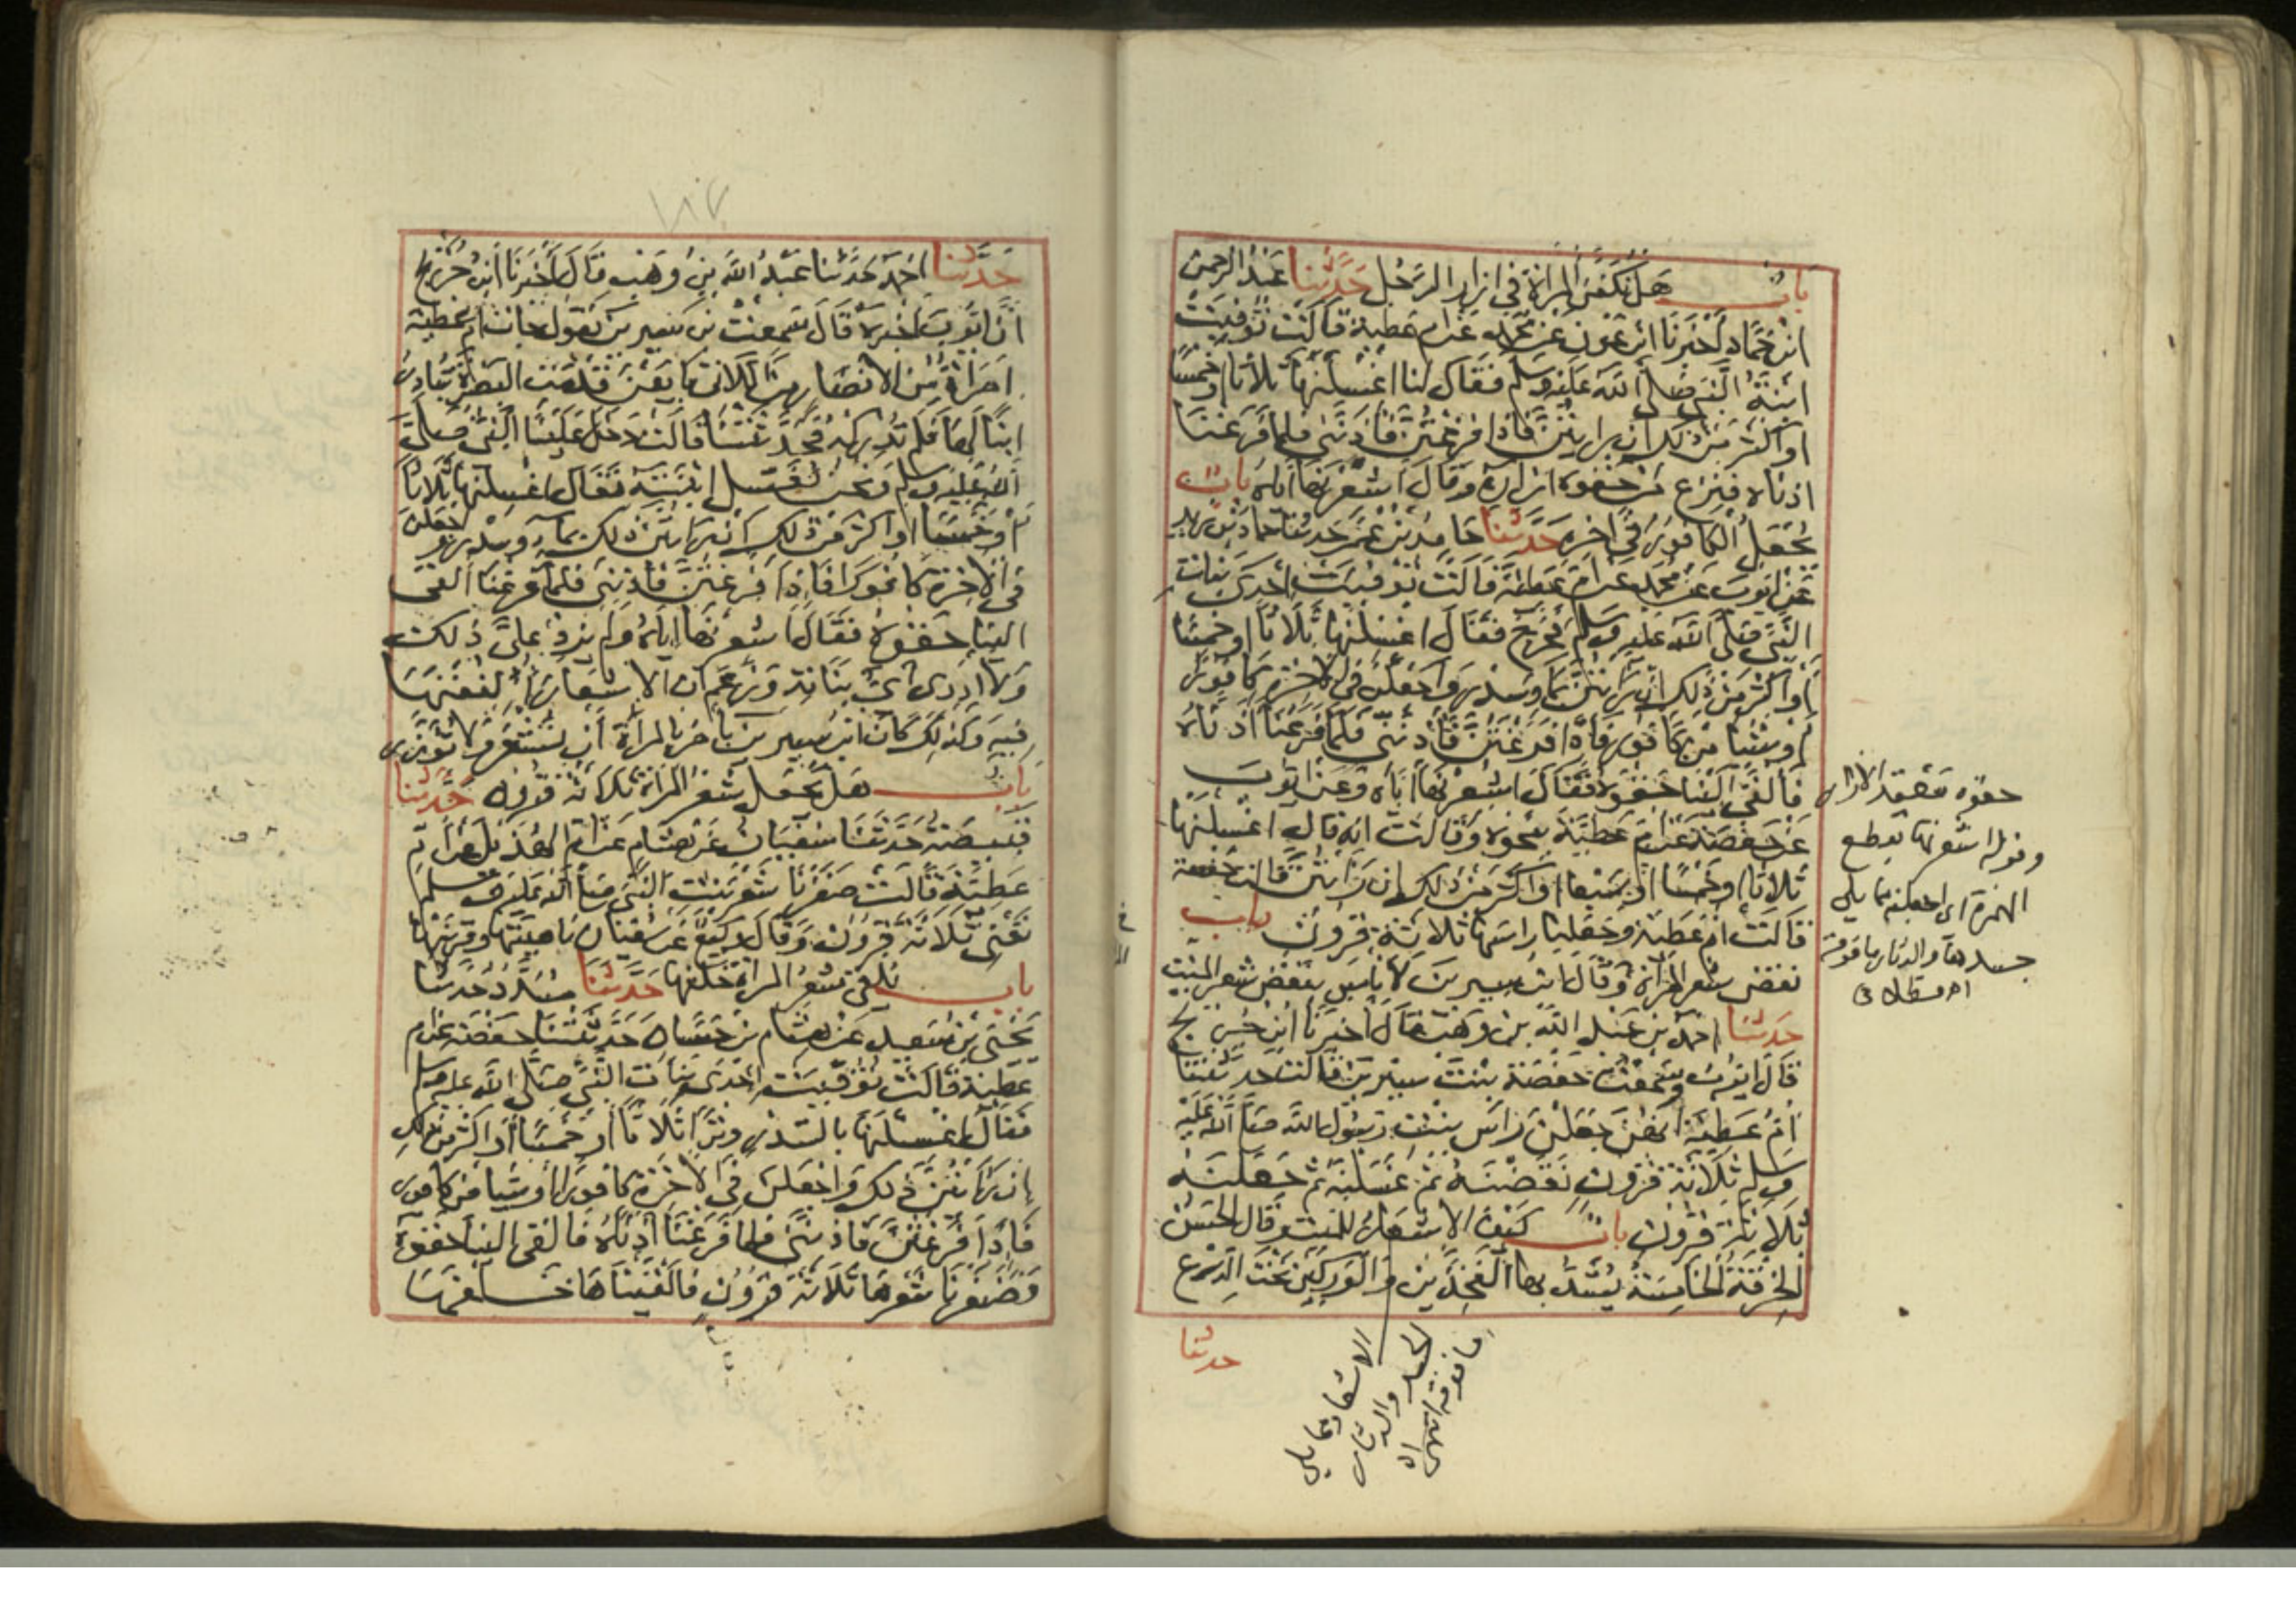 باب هل تكفن المرأة في ازار الرجل حدثنا عبد الرحمن
ابن حماد اخبرنا ابن عون عن محمد عن ام عطية قالت توفيت
ابنة النبي صلى الله عليه وسلم فقال لنا اغسلنها ثلاثا او خمسا
او اكثر من ذلك ان رايتن فاذا فرغتن فاذنني فلما فرغنا
اذناه فنزع من حقوه ازاره وقال اشعرنها اياه باب
يجعل الكافور في اخره حدثنا حامد بن عمر حدثنا حماد بن زيد
عن ايوب عن محمد عن ام عطية قالت توفيت احدى بنات
النبي صلى الله عليه وسلم فخرج فقال اغسلنها ثلاثا او خمسا
او اكثر من ذلك ان رايتن بماء وسدر واجعلن في الاخرة كافورا
او شيا من كافور فاذا فرغتن فاذنني فلما فرغنا اذناه
فالقى الينا حقوه فقال اشعرنها اياه وعن ايوب
عن حفصة عن ام عطية بنحوه وقالت انه قال اغسلنها
ثلاثا او خمسا او سبعا او اكثر من ذلك ان رايتن قالت حفصة
قالت ام عطية وجعلنا راسها ثلاثة قرون باب
نقض شعر المرأة وقال ابن سيرين لا باس بنقض شعر الميت
حدثنا احمد بن عبد الله بن وهب قال اخبرنا ابن جريج
قال ايوب وسمعت حفصة بنت سيرين قالت حدثتنا
ام عطية انهن جعلن راس بنت رسول الله صلى الله عليه
وسلم ثلاثة قرون نقضنه ثم غسلنه ثم جعلنه
ثلاثة قرون باب كيف الاشعار للميت وقال الحسن
الخرقة الخامسة يشد بها الفخذين والوركين تحت الدرع
حدثنا
حقوه معقد الازار
وقوله اشعرنها بقطع
الهمزة اى اجعلنه مما يلي
جسدها والدثار ما فوقه
اهـ قسطلانى
الاشعار مما يلي
الجسد والدثار
ما فوقه
حدثنا احمد حدثنا عبد الله بن وهب قال اخبرنا ابن جريج
ان ايوب اخبره قال سمعت بن سيرين يقول جات ام عطية
امرأة من الانصار من اللاتى بايعن قدمت البصرة تبادر
ابنا لها فلم تدركه فحدثتنا قالت دخل علينا النبي صلى
الله عليه وسلم ونحن نغسل ابنته فقال اغسلنها ثلاثا
او خمسا او اكثر من ذلك ان رايتن ذلك بماء وسدر واجعلن
في الاخرة كافورا فاذا فرغتن فاذنني فلما فرغنا القى
الينا حقوه فقال اشعرنها اياه ولم يزد على ذلك
ولا ادرى اي بناته وزعم ان الاشعار الففنها
فيه وكذلك كان ابن سيرين يامر بالمرأة ان تشعر ولا تؤزر
باب هل يجعل شعر المرأة ثلاثة قرون حدثنا
قبيصة حدثنا سفيان عن هشام عن ام الهذيل عن ام
عطية قالت ضفرنا شعر بنت النبي صلى الله عليه وسلم
تعنى ثلاثة قرون وقال وكيع عن سفيان ناصيتها وقرنيها
باب يلقى شعر المرأة خلفها حدثنا مسدد حدثنا
يحيى بن سعيد عن هشام بن حسان حدثتنا حفصة عن ام
عطية قالت توفيت احدى بنات النبي صلى الله عليه وسلم
فقال اغسلنها بالسدر وترا ثلاثا او خمسا او اكثر من ذلك
ان رايتن ذلك واجعلن في الاخرة كافورا او شيا من كافور
فاذا فرغتن فاذنني فلما فرغنا اذناه فالقى الينا حقوه
فضفرنا شعرها ثلاثة قرون فالقيناها خلفها